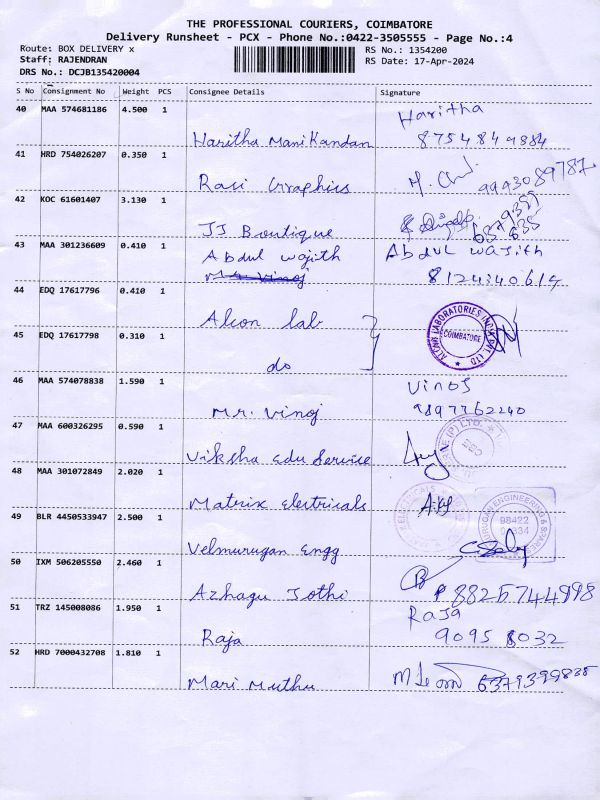 THE PROFESSIONAL COURIERS, COIMBATORE
Delivery Runsheet - PCX - Phone No.:0422-3505555 - Page No.:4
Route: BOX DELIVERY x
RS No.: 1354200
Staff: RAJENDRAN
RS Date: 17-Apr-2024
DRS No.: DCJB135420004
S No Consignment No Weight PCS Consignee Details Signature
40 MAA 574681186 4.500 1 Haritha
Haritha Manikandan 8754849884
41 HRD 754026207 0.350 1
Rasi Graphics 9993089787
42 KOC 61601407 3.130 1
JJ Boutique
43 MAA 301236609 0.410 1 Abdul wajith Abdul wajith
Mr. Vinoj 8124340614
44 EDQ 17617796 0.410 1
Alcon lab
LABORATORIES INDIA PVT LTD COIMBATORE
45 EDQ 17617798 0.310 1
do
46 MAA 574078838 1.590 1 Vinoj
Mr. Vinoj 9897762240
47 MAA 600326295 0.590 1
Viksha Edu Service
48 MAA 301072849 2.020 1
Matrix Electricals
49 BLR 4450533947 2.500 1
ENGINEERING & 98422
Velmurugan Engg
50 IXM 506205550 2.460 1
Azhagu Jothi 8825744998
51 TRZ 145008086 1.950 1 Raja
Raja 9095 8032
52 HRD 7000432708 1.810 1
Mari Muthu 6379399835